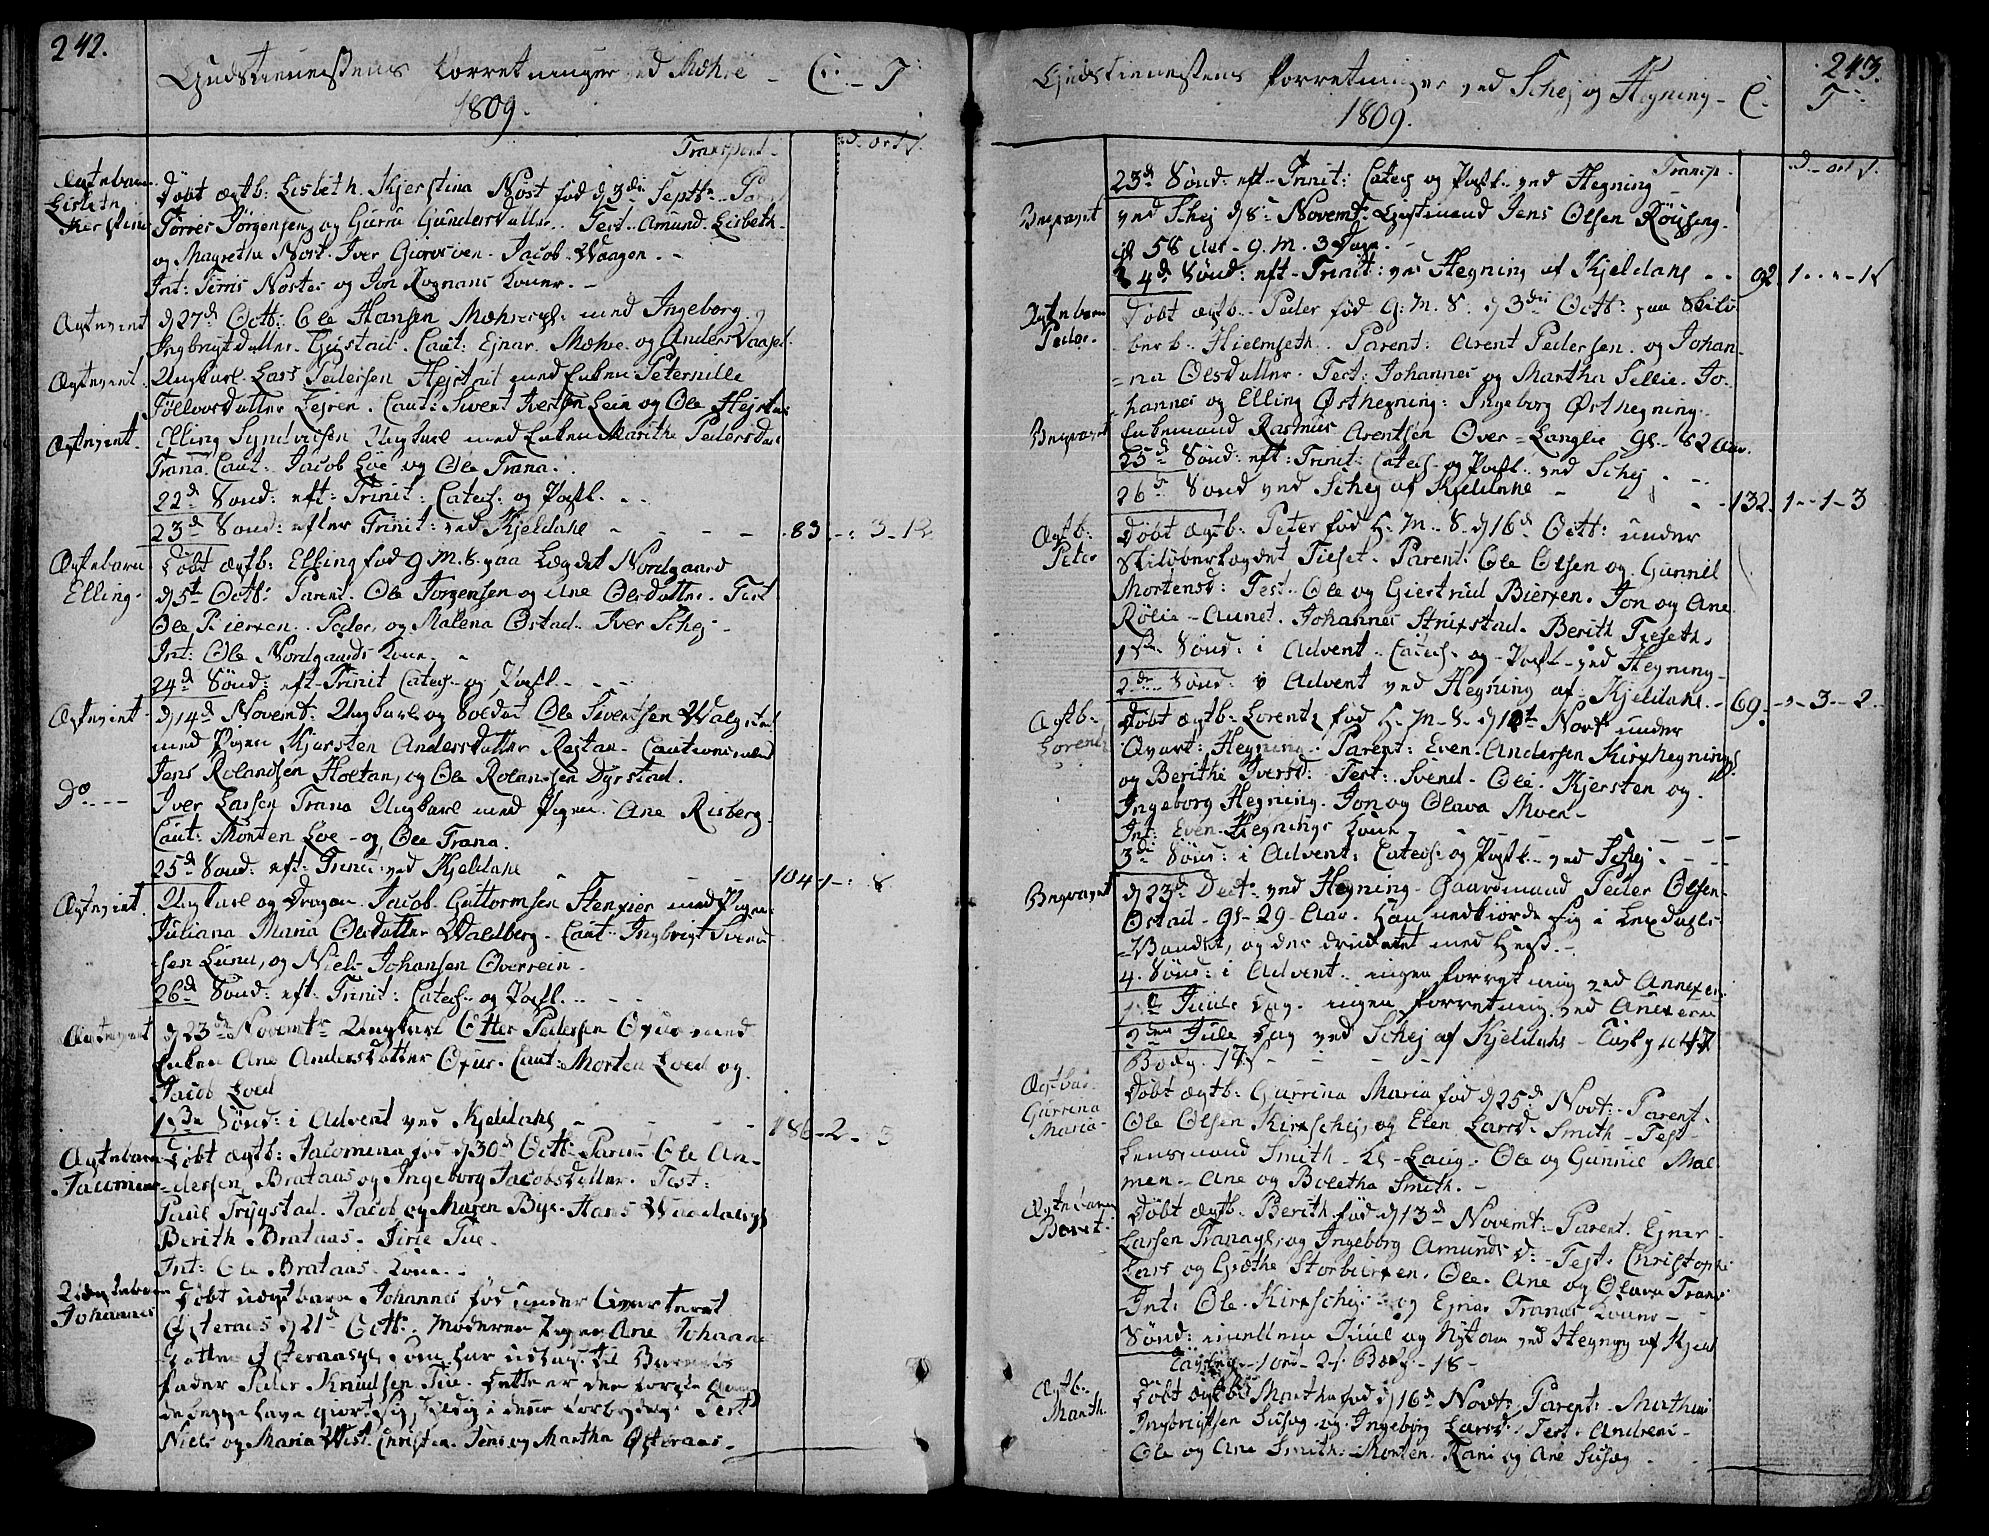 242.
Gudstienestens Forretninger ved Mæhre - C. - T
1809.
Transport.
d. ort s.
Ægtebarn
Lisbeth
Kierstina
Døbt ægtb: Lisbeth Kjerstina Nøst fød d 3die Septbr. Par:
Torres Jørgensen og Gurru Gundersdatter. Test. Amund. Lisbeth
og Magrethe Nøst. Iver Jacob Waagen. -
Int: Torris Nøstes og Jon Rognans Koner. -
Ægteviet
d 27de Octb: Ole Hansen Mæhre med Ingeborg
Ingbrigtdatter Caut: Ejnar Mæhre og Anders
Ægteviet.
Ungkarl Lars Pedersen Hejstad med Enken Peternille
Tollevsdatter Caut: Sivert Iversen Lein og Ole Hejstad
Ægteviet.
Elling Ungkarl med Enken Marithe Pedersdat
Trana. Caut. Jacob Løe og Ole Trana.
22de Sønd: eft: Trinit: Catech: og Post.
23de Sønd: efter Trinit: ved Kjeldahl - 83. - 3 - 12
Ægtebarn
Elling.
Døbt ægtb: Elling fød 9 M. 8. paa Lægdet Nordgaard
d 5te Octb: Parent. Ole Jørgensen og Ane Olsdatter. Test
Ole Bierxen. Peder, og Malena Østad. Iver Schej -
Int: Ole Nordgaards Kone. -
24de Sønd: eft. Trinit Catech - og Post. - -
Ægteviet.
d 14de Novemt: Ungkarl og Soldat Ole Sivertsen
med Pigen Kjersten Andersdatter Røstan - Cautionsmænd
Jens Rolandsen Holtan, og Ole Rolandsen Dyrstad.
Do - - -
Iver Larsen Trana Ungkarl med Pigen Ane Risberg.
Caut: Morten Løe - og Ole Trana.
25de Sønd: eft: Trinit: ved Kjeldahl - 104 - 1 - : 8
Ægteviet.
Ungkarl og Dragon Jacob Guttormsen Stenxier med Pigen
Juliana Maria Olsdatter Waldberg. Caut. Ingbrigt Svend
-sen Lund, og Niels Johansen Overrein.
26de Sønd: eft: Trinit: Catech: og Post.
Ægteviet
d 23de Novembr Ungkarl Otter Pedersen med
Enken Ane Andersdatter Caut: Morten Loed og
Jacob Loed
1ste Sønd: i Advent ved Kjeldahl - 186 - 2 - 3
Ægtebarn
Jacomene
Døbt ægtb: Jacomena fød d 30de Octb: Parent Ole An-
-dersen Brataas og Ingeborg Jacobsdatter. Test:
Paul Trygstad. Jacob og Maren Bye. Hans
Berith Brataas. Sirie Tue.
Int: Ole Brataas Kone. -
Uægtebarn
Johannes
Døbt uægtbarn Johannes fød under Qvarteret
Østeraas d 21de Octb. Moderen Pigen Ane Johannes
datter Østeraas som har udlagt til Barnets
fader Peder Knudsen Tue. Dette er den første Gang
de begge have giort sig skyldig i denne Forbrydelse. Test
Niels og Maria West. Christen. Jens og Martha Østeraas. -
243.
Gudstienestens Forretninger ved Schej og Hegning - C. T.
1809.
Transp. d. ort s.
23de Sønd: eft. Trinit: Catech og Post. ved Hegning
Begravet
ved Schej d 8de Novemt. Jens Olsen Røising.
58 Aar - 9. M. 3 Dage. -
24de Sønd: eft. Trinit: ved Hegning af Kjeldahl - - 92. 1 - - - 15
Ægtebarn
Peder.
Døbt ægtb. Peder fød 9. M. 8. d 3die Octb: paa Skilø-
berb. Hielmseth. Parent: Arent Pedersen og Johan-
=na Olsdatter. Test: Johannes og Martha Sellie. Jo-
hannes og Elling Østhegning: Ingeborg Østhegning.
Begravet
Enkemand Rasmus Arentsen Over=Langlie gl. 82 Aar.
25de Sønd: eft: Trinit: Catech - og Post. ved Schej. -
26de Sønd ved Schej af Kjeldahl - 132. 1 - 1 - 3
Ægtb.
Peter
Døbt ægtb. Peter fød H. M. 8. d 16de Octb: under
Skiløberlægdet Tuset. Parent: Ole Olsen og Gunnil
Mortensd: Test. Ole og Giertrud Bierxen. Jon og Ane
Rølie - Aunet. Johannes Struxstad. Berith Tjeseth.
1ste Sønd: i Advent. Catech. og Post - ved Hegning -
2den Sønd: i Advent ved Hegning af Kjeldahl. - 69. - - 3 - 2 -
Ægtb.
Lorentz
Døbt ægtb. Lorentz fød H. M - 8 - d Novt under
Qvart: Hegning. Parent: Even Andersen Kirxhegning
og Berithe Iversd: Test: Svend. Ole. Kjersten og
Ingeborg Hegning. Jon og Olava Moen -
Int: Even Hegnings Kone. -
3die Sønd: i Advent: Catech: og Post. ved Schej. -
Begravet
d 23de Decb. ved Hegning - Gaardmand Peder Olsen
Østad - gl. 29 - Aar. Han nedkiørde sig i Lexdahls
-Vandet, og der druknet med Hest. -
4. Sønd: i Advent. ingen forretning ved Annexerne
1ste Juule Dag. ingen forretning ved Anexerne
2den Jule Dag ved Schej af Kjeldahl -
17s -
Ægtbar.
Gurrina
Maria -
Døbt ægtb: Gurrina Maria fød d 25de Novt: - Parent.
Ole Olsen Kirxschej, og Elen Larsd. Smith - Test -
Lensmand Smith - Ole og Gunnil Mal-
men. - Ane og Boletha Smith. -
Ægtebarn
Beret.
Døbt ægtb. Berith fød d 13de Novemt: - Parent. Ejner
Larsen Trana og Ingeborg Amundsd: - Test. Christoph
Lars og Grethe Storbierxen. Ole. Ane og Olava Trana
Int: Ole Kirxschej - og Ejner Tranas Koner - -
Sønd: imellem Juul og Nytaar ved Hegning af Kjeld
1 ort - 2s. 18 -
Ægtb.
Marth.
Døbt ægtb: Martha fød d 16de Novt: Parent: Mathias
Ingbrigtsen og Ingeborg Larsd. Test. Andreas
Ole og Ane Smith. Morten. Rani og Ane